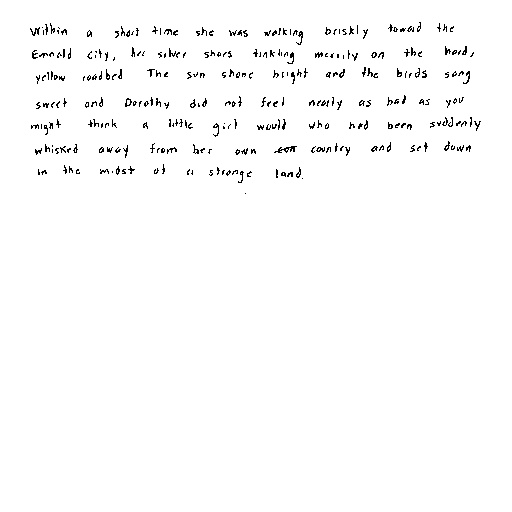 Within a short time she was walking briskly toward the
Emerald City, her silver shoes tinkling merrily on the hard,
yellow roadbed The sun shone bright and the birds song
sweet and Dorothy did not feel nearly as bad as you
might think a little girl would who had been suddenly
whisked away from her own country and set down
in the midst of a strange land.